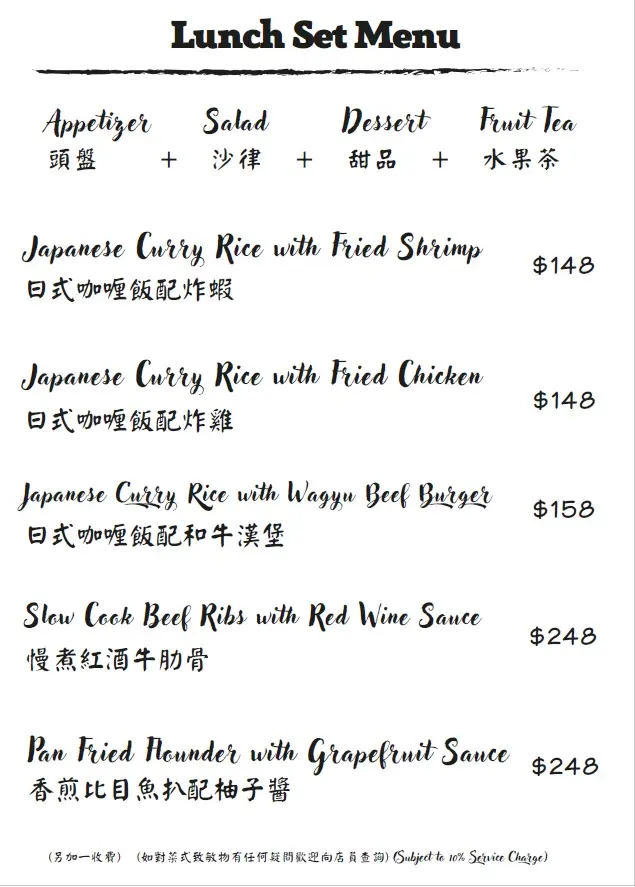 Lunch Set Menu
Appetizer Salad Dessert Fruit Tea
頭盤 + 沙律 + 甜品 + 水果茶
Japanese Curry Rice with Fried Shrimp
日式咖喱飯配炸蝦 $148
Japanese Curry Rice with Fried Chicken
日式咖喱飯配炸雞 $148
Japanese Curry Rice with Wagyu Beef Burger
日式咖喱飯配和牛漢堡 $158
Slow Cook Beef Ribs with Red Wine Sauce
慢煮紅酒牛肋骨 $248
Pan Fried Flounder with Grapefruit Sauce
香煎比目魚扒配柚子醬 $248
(另加一收費) (如對菜式致敏物有任何疑問歡迎向店員查詢) (Subject to 10% Service Charge)